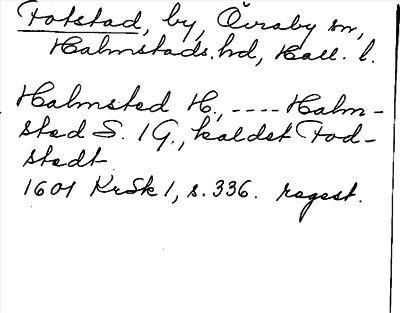 Fotstad, by, Övraby sn,
Halmstads hd, Hall. l.
Halmsted H., ---- Halm-
sted S. 1 G., kaldet Fod-
stedt
1601 KrSk 1, s. 336. regest.